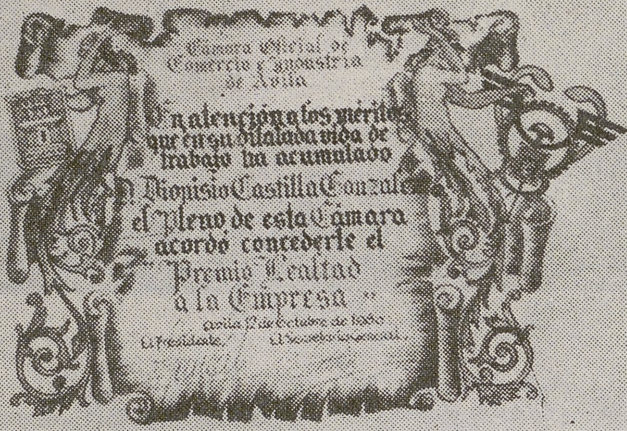 Cámara Oficial de
Comercio e Industria
de Avila
En atención a los méritos
que en su dilatada vida de
trabajo ha acumulado
D. Dionisio Castilla Gonzalez
el Pleno de esta Cámara
acordó concederle el
Premio Lealtad
a la Empresa
Avila 12 de Octubre de
El Presidente, El Secretario General,